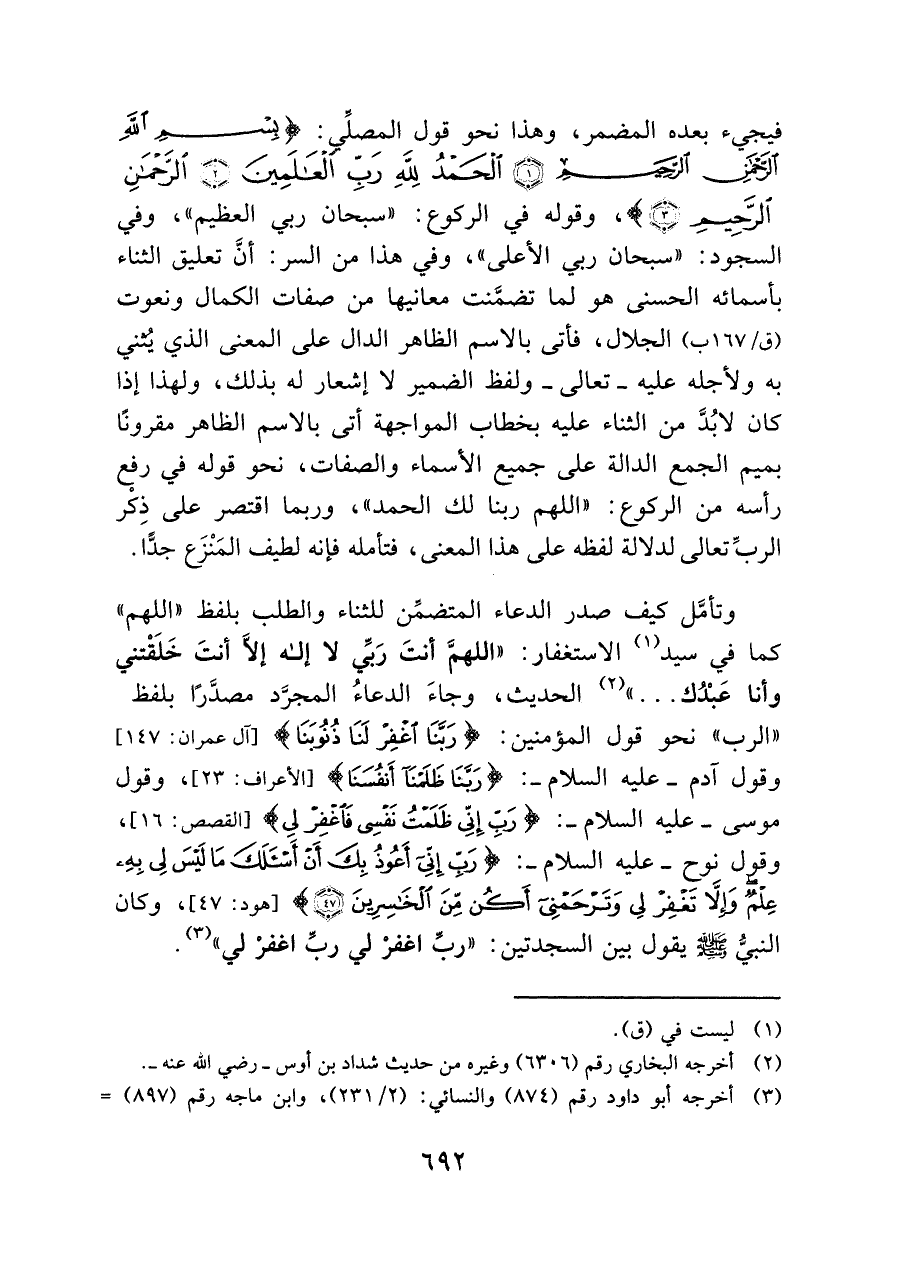 فيجيء بعده المضمر، وهذا نحو قول المصلِّي: ﴿بِسْمِ ٱللَّهِ
ٱلرَّحْمَٰنِ ٱلرَّحِيمِ ۝١ ٱلْحَمْدُ لِلَّهِ رَبِّ ٱلْعَٰلَمِينَ ۝٢ ٱلرَّحْمَٰنِ
ٱلرَّحِيمِ ۝٣﴾، وقوله في الركوع: «سبحان ربي العظيم»، وفي
السجود: «سبحان ربي الأعلى»، وفي هذا من السر: أنَّ تعليق الثناء
بأسمائه الحسنى هو لما تضمَّنت معانيها من صفات الكمال ونعوت
(ق/١٦٧ب) الجلال، فأتى بالاسم الظاهر الدال على المعنى الذي يُثني
به ولأجله عليه ـ تعالى ـ ولفظ الضمير لا إشعار له بذلك، ولهذا إذا
كان لابُدَّ من الثناء عليه بخطاب المواجهة أتى بالاسم الظاهر مقرونًا
بميم الجمع الدالة على جميع الأسماء والصفات، نحو قوله في رفع
رأسه من الركوع: «اللهم ربنا لك الحمد»، وربما اقتصر على ذِكْر
الربِّ تعالى لدلالة لفظه على هذا المعنى، فتأمله فإنه لطيف المَنْزَع جدًّا.
وتأمَّل كيف صدر الدعاء المتضمِّن للثناء والطلب بلفظ «اللهم»
كما في سيد(١) الاستغفار: «اللهمَّ أنتَ رَبِّي لا إلـٰه إلاَّ أنتَ خَلَقْتني
وأنا عَبْدُك...»(٢) الحديث، وجاءَ الدعاءُ المجرَّد مصدَّرًا بلفظ
«الرب» نحو قول المؤمنين: ﴿رَبَّنَا ٱغْفِرْ لَنَا ذُنُوبَنَا﴾ [آل عمران: ١٤٧]
وقول آدم ـ عليه السلام ـ: ﴿رَبَّنَا ظَلَمْنَآ أَنفُسَنَا﴾ [الأعراف: ٢٣]، وقول
موسى ـ عليه السلام ـ: ﴿رَبِّ إِنِّي ظَلَمْتُ نَفْسِي فَٱغْفِرْ لِي﴾ [القصص: ١٦]،
وقول نوح ـ عليه السلام ـ: ﴿رَبِّ إِنِّيٓ أَعُوذُ بِكَ أَنْ أَسْـَٔلَكَ مَا لَيْسَ لِي بِهِۦ
عِلْمٌ ۖ وَإِلَّا تَغْفِرْ لِي وَتَرْحَمْنِيٓ أَكُن مِّنَ ٱلْخَٰسِرِينَ ۝٤٧﴾ [هود: ٤٧]، وكان
النبيُّ ﷺ يقول بين السجدتين: «ربِّ اغفرْ لي ربِّ اغفرْ لي»(٣).
(١) ليست في (ق).
(٢) أخرجه البخاري رقم (٦٣٠٦) وغيره من حديث شداد بن أوس ـ رضي الله عنه ـ.
(٣) أخرجه أبو داود رقم (٨٧٤) والنسائي: (٢/ ٢٣١)، وابن ماجه رقم (٨٩٧) =
٦٩٢